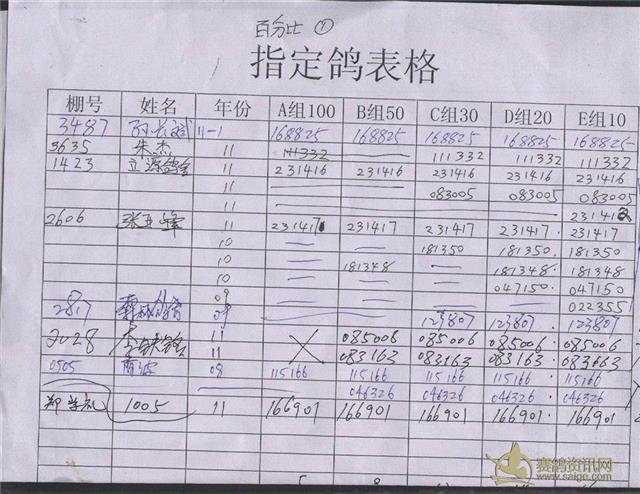 百分比 ①
指定鸽表格
棚号 姓名 年份 A组100 B组50 C组30 D组20 E组10
3487 11-1 168825 168825 168825 168825 168825
3635 朱杰 11 111332 111332 111332
1423 立源鸽舍 11 231416 231416 231416 231416 231416
11 083005 083005 083005
11 231412
2606 张亚峰 11 231417 231417 231417 231417 231417
10 181350 181350 181350
10 181348 181348 181348
10 047150 047150
09 022355
2817 09 123807 123807 123807
2028 11 085006 085006 085006 085006
11 083163 083163 083163 083163
0505 08 115166 115166 115166 115166 115166
046326 046326 046326 046326
郑学礼 1005 11 166901 166901 166901 166901 166901
赛鸽资讯网
www.saige.com